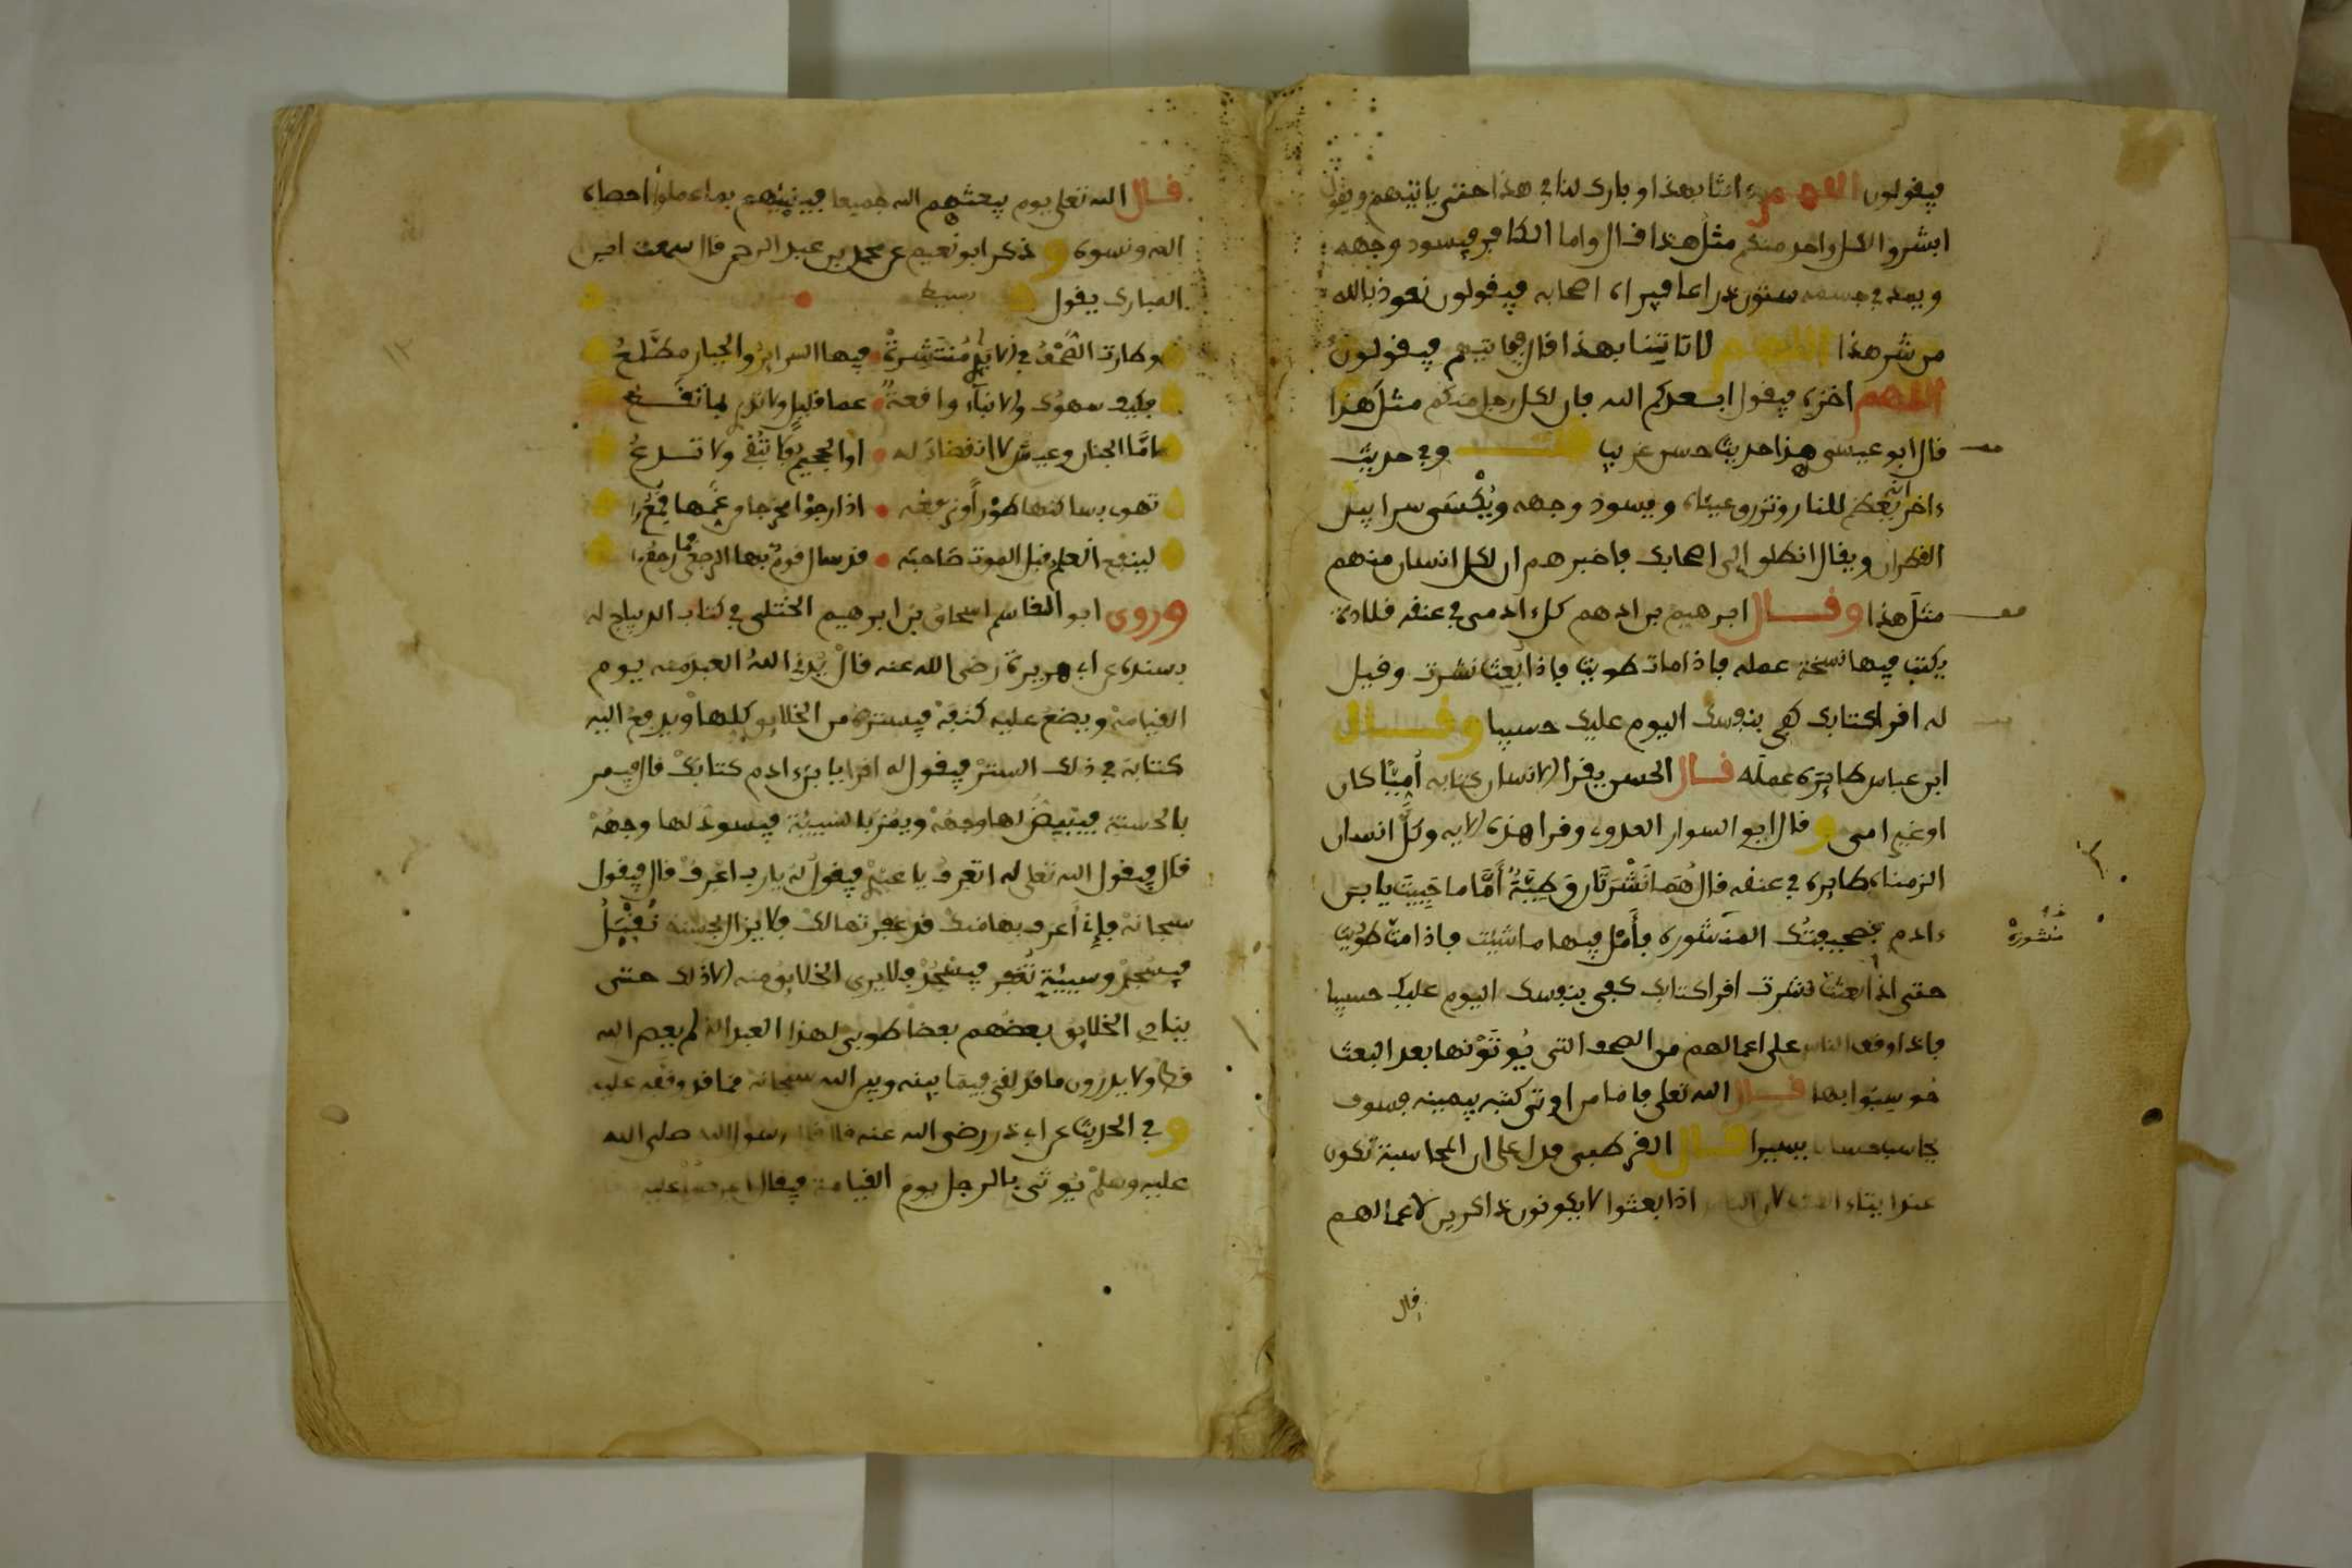 فيقولون اللهم ائتنا بهذا وبارك لنا في هذا حتى ياتيهم ويقول
ابشروا لكل واحد منكم مثل هذا قال واما الكافر فيسود وجهه
ويمد في جسمه ستون ذراعا فيراه اصحابه فيقولون نعوذ بالله
من شر هذا اللهم لا تاتنا بهذا قال فياتيهم فيقولون
اللهم اخزه فيقول ابعدكم الله فان لكل رجل منكم مثل هذا
قال ابو عيسى هذا حديث حسن غريب وفي حديث
ءاخر للنار وتزرق عيناه ويسود وجهه ويُكْسَى سرابيل
القطران ويقال انطلق إلى اصحابك فاخبرهم ان لكل انسان منهم
مثل هذا وقال ابرهيم بن ادهم كل ءادمي في عنقه قلادة
يكتب فيها نسخة عمله فاذا مات طويت فاذا بُعث نشرت وقيل
له اقرا كتابك كفى بنفسك اليوم عليك حسيبا وقال
ابن عباس طايره عمله قال الحسن يقرا الانسان كتابه أُمِيًّا كان
او غير امي وقال ابو السوار العدوي وقرا هذه الاية وكل انسان
الزمناه طايره في عنقه قال هُمَا نَشْرَتَان وَطَيَّةٌ أَمَّا ما حَيِيتَ يا بن
ءادم فصحيفتُك المنشورة فأَمْلِ فيها ما شيت فاذا متّ طُوِيَت
حتى اذا بُعثت نشرت اقرا كتابك كفى بنفسك اليوم عليك حسيبا
فاذا وقف الناس على اعمالهم من الصحف التي يُوتَوْنها بعد البعث
حوسِبُوا بها قال الله تعلى فاما من اوتي كتبه بيمينه فسوف
يحاسب حسابا يسيرا قال القرطبي فدل على ان المحاسبة تكون
عند ايتاء الصحف لان الناس اذا بعثوا لا يكونون ذاكرين لاعمالهم
قال
منشورة
قال الله تعلى يوم يبعثهم الله جميعا فينبئهم بما عملوا احصاه
الله ونسوه وذكر ابو نعيم عن محمد بن عبد الرحمن قال سمعت ابن
المبارك يقول بسيط
وطارت الصُّحْفُ في الايدي مُنْتَشِرَةً فيها السراير والجبار مطَّلِعُ
فكيف سهوك والانباء واقعةٌ عما قليل ولا تدري بما تقع
إمَّا الجنان وعيش لا انقضاء له او الجحيم فلا تُبْقي ولا تدعُ
تهوي بساكنها طَوْرًا وترفعه اذا رجوا مخرجا من غَمِّها قُمِعُوا
لينفع العلم قبل الموت صاحبه قد سال قوم بها الرجعى فما رجعوا
وروى ابو القاسم اسحاق بن ابرهيم الختلي في كتاب الديباج له
بسنده عن ابي هريرة رضي الله عنه قال يُدْنِي اللهُ العبد منه يوم
القيامة ويضع عليه كنفه فيستره من الخلايق كلها ويدفع اليه
كتابه في ذلك الستر فيقول له اقرا يا بن ءادم كتابك قال فيمر
بالحسنة فيبيضّ لها وجهه ويمر بالسيئة فيسود لها وجهه
قال فيقول الله تعلى له اتعرف يا عبدي فيقول له يا رب اعرف قال فيقول
سبحانه فإنّي أعرف بها منك قد غفرتها لك فلا يزال بحسنة تُقْبَلُ
فيسجد وسيئة تُغْفر فيسجد فلا يرى الخلايق منه الا ذلك حتى
ينادي الخلايق بعضهم بعضا طوبى لهذا العبد الذي لم يعص الله
قط ولا يدرون ما قد لقي فيما بينه وبين الله سبحانه مما قد وقفه عليه
وفي الحديث عن ابي ذر رضي الله عنه قال قال رسول الله صلى الله
عليه وسلم يُوتَى بالرجل يوم القيامة فيقال اعرضوا عليه